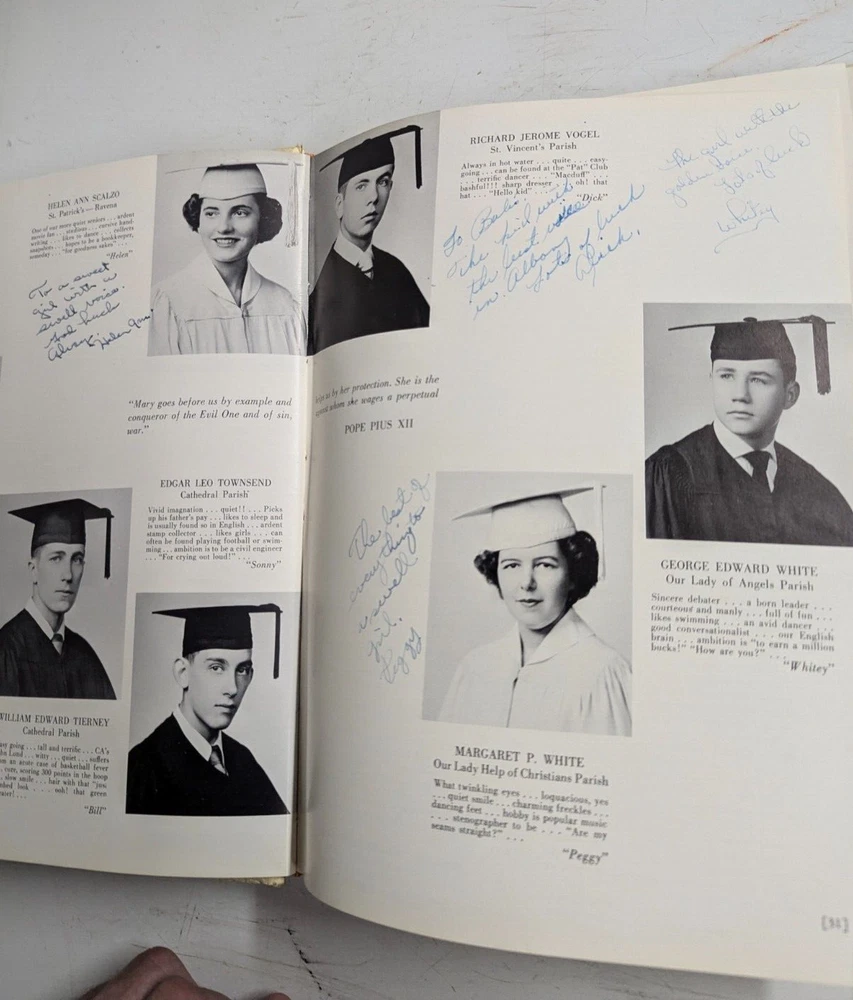 HELEN ANN SCALZO
St. Patrick's — Ravena
One of our more quiet seniors . . . ardent
movie fan . . . studious . . . cursive hand-
writing . . . likes to dance . . . collects
snapshots . . . hopes to be a bookkeeper,
someday . . . "for goodness sakes" . . .
"Helen"
To a sweet
girl with a
swell voice.
Good luck
Always
Helen Ann
"Mary goes before us by example and
conqueror of the Evil One and of sin,
war."
EDGAR LEO TOWNSEND
Cathedral Parish
Vivid imagination . . . quiet!! . . . Picks
up his father's pay . . . likes to sleep and
is usually found so in English . . . ardent
stamp collector . . . likes girls . . . can
often be found playing football or swim-
ming . . . ambition is to be a civil engineer
. . . "For crying out loud!" . . .
"Sonny"
WILLIAM EDWARD TIERNEY
Cathedral Parish
going . . . tall and terrific . . . CA's
Lund . . . witty . . . quiet . . . suffers
an acute case of basketball fever
. . . scoring 300 points in the hoop
. . . slow smile . . . hair with that "jus
look . . . ooh! that green
"Bill"
RICHARD JEROME VOGEL
St. Vincent's Parish
Always in hot water . . . quite . . . easy-
going . . . can be found at the "Pat" Club
. . . terrific dancer . . . "Macduff" . . .
bashful!!! sharp dresser . . . oh! that
hat . . . "Hello kid" . . .
"Dick"
To Barb:
The kid with
the best voice
in Albany
Lots of luck
Dick.
The girl with the
golden voice
Lots of luck
Whitey
us by her protection. She is the
whom she wages a perpetual
POPE PIUS XII
The best of
everything to
a swell
girl.
Peggy
MARGARET P. WHITE
Our Lady Help of Christians Parish
What twinkling eyes . . . loquacious, yes
. . . quiet smile . . . charming freckles . . .
dancing feet . . . hobby is popular music
. . . stenographer to be . . . "Are my
seams straight?" . . .
"Peggy"
GEORGE EDWARD WHITE
Our Lady of Angels Parish
Sincere debater . . . a born leader . . .
courteous and manly . . . full of fun . . .
likes swimming . . . an avid dancer . . .
good conversationalist . . . our English
brain . . . ambition is "to earn a million
bucks!" "How are you?" . . .
"Whitey"